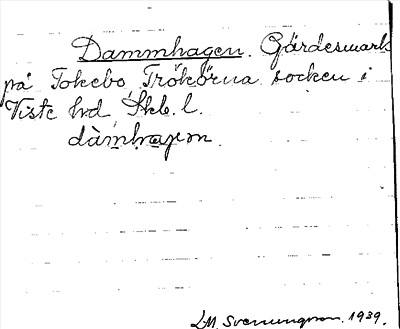 Dammhagen. Gärdesmark
på Tokebo, Trökörna socken i
Viste hd, Skb. l.
dàmhagen.
L.M. Svenungson. 1939.